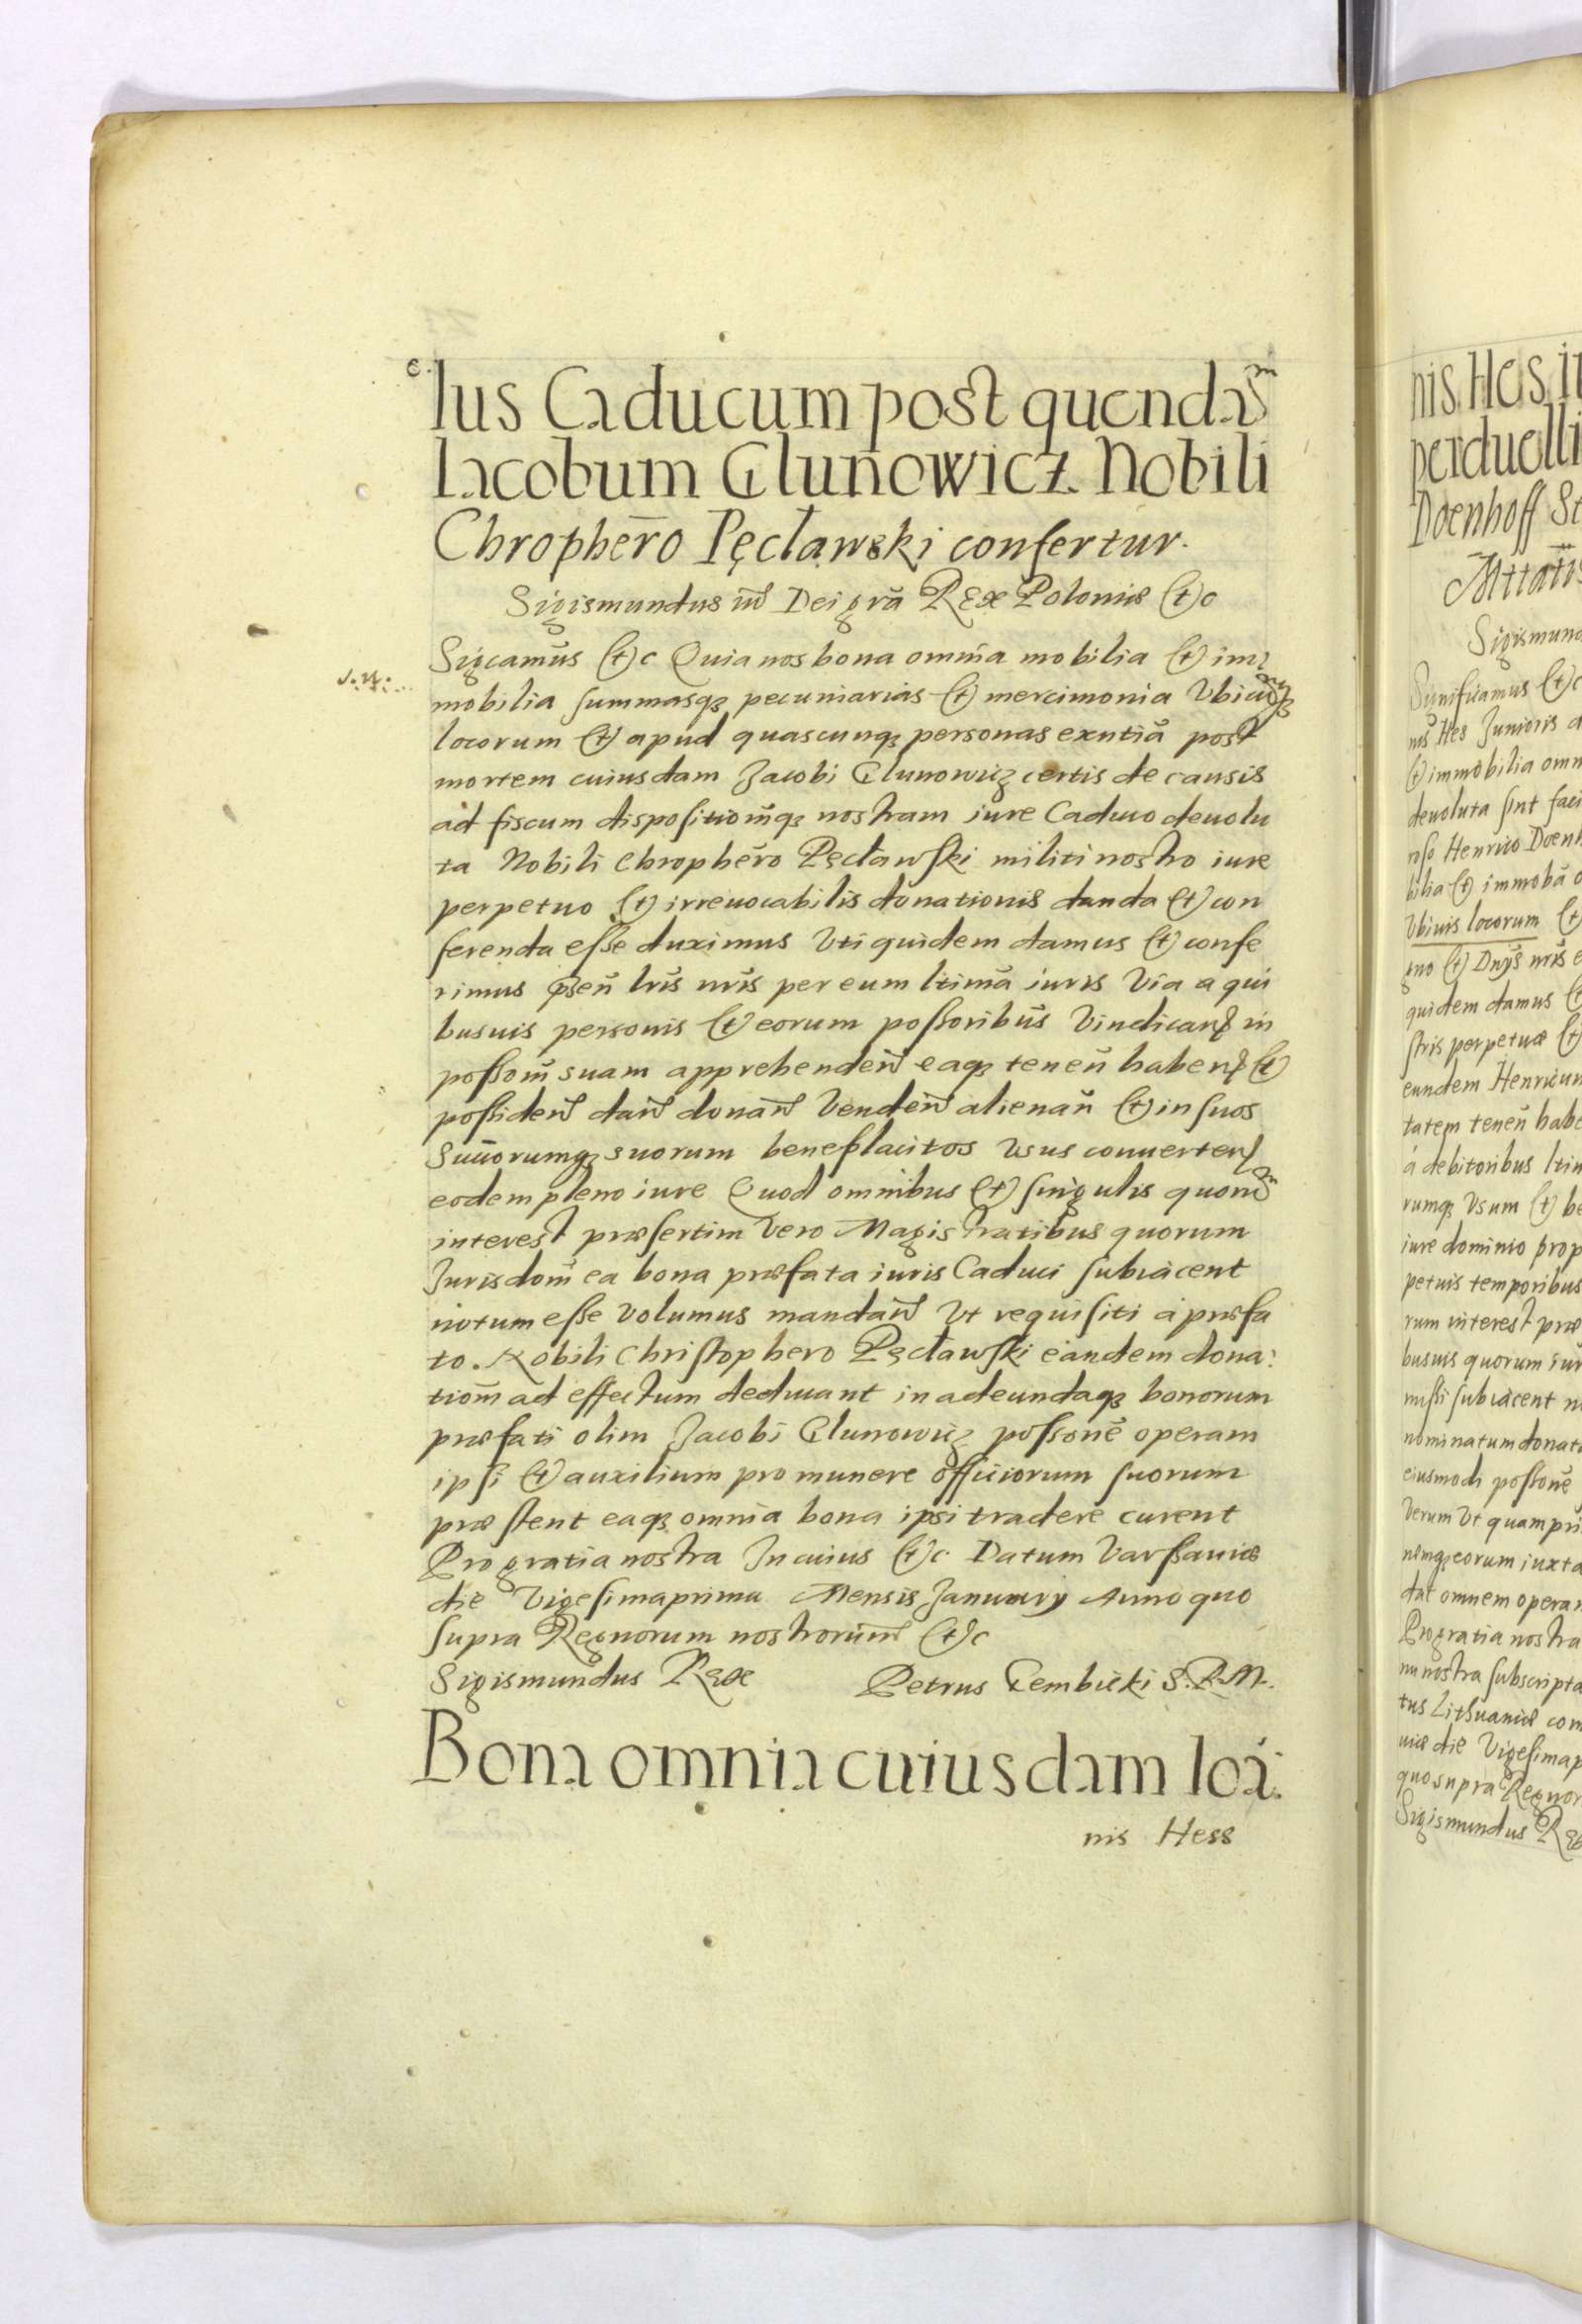 Ius Caducum post quendam
Iacobum Glunowicz Nobili
Chrophero Pęcławski confertur.
Sigismundus iii Dei gra Rex Poloniæ etc
Sigcamus etc Quia nos bona omnia mobilia et im
mobilia summasq pecuniarias et mercimonia Vbicunq
locorum et apud quascunq personas exntia post
mortem cuiusdam Jacobi Glunowicz certis de causis
ad fiscum dispositiomq nostram iure Caduco deuolu
ta Nobili Chrophero Pęcławski militi nostro iure
perpetuo et irreuocabilis donationis danda et con
ferenda esse duximus Vti quidem damus et confe
rimus psen lris nris per eum ltima iuris Via a qui
busuis personis et eorum possoribus Vindican in
possom suam apprehenden eaq tenen haben et
possiden dan donan Venden alienan et in suos
Suuorumq suorum beneplacitos Vsus conuerten
eodem pleno iure Quod omnibus et singulis quorum
interest præsertim Vero Magistratibus quorum
Jurisdom ea bona præfata iuris Caduci subiacent
notum esse Volumus mandan Vt requisiti a præfa
to Nobili Christophero Pęcławski eandem dona
tiom ad effectum deducant in adeundaq bonorum
præfati olim Jacobi Glunowicz possone operam
ipsi et auxilium pro munere officiorum suorum
præstent eaq omnia bona ipsi tradere curent
Pro gratia nostra In cuius etc Datum Varsauiæ
die Vigesimaprima Mensis January Anno quo
supra Regnorum nostrorum etc
Sigismundus Rex Petrus Gembicki S.R.M.
Bona omnia cuiusdam Ioa
nis Hess
nis Hes
perduelli
Doenhoff
Sigismund
Significamus etc
nis Hes Junioris
et immobilia omn
deuoluta sint
Henrico Doenh
bilia et immoba
Vbiuis locorum et
gno et Dnys nris
quidem damus
stris perpetuæ et
eundem Henricum
tatem tenen habe
a debitoribus ltim
rumq Vsum et be
iure dominio prop
petuis temporibus
rum interest præ
busuis quorum iur
missi subiacent
nominatum donati
eiusmodi possone
Verum Vt quam pri
nemq eorum iuxta
dat omnem operam
Pro gratia nostra
nu nostra subscripta
tus Lithuaniæ com
uiæ die Vigesimap
quo supra Regnor
Sigismundus Rex